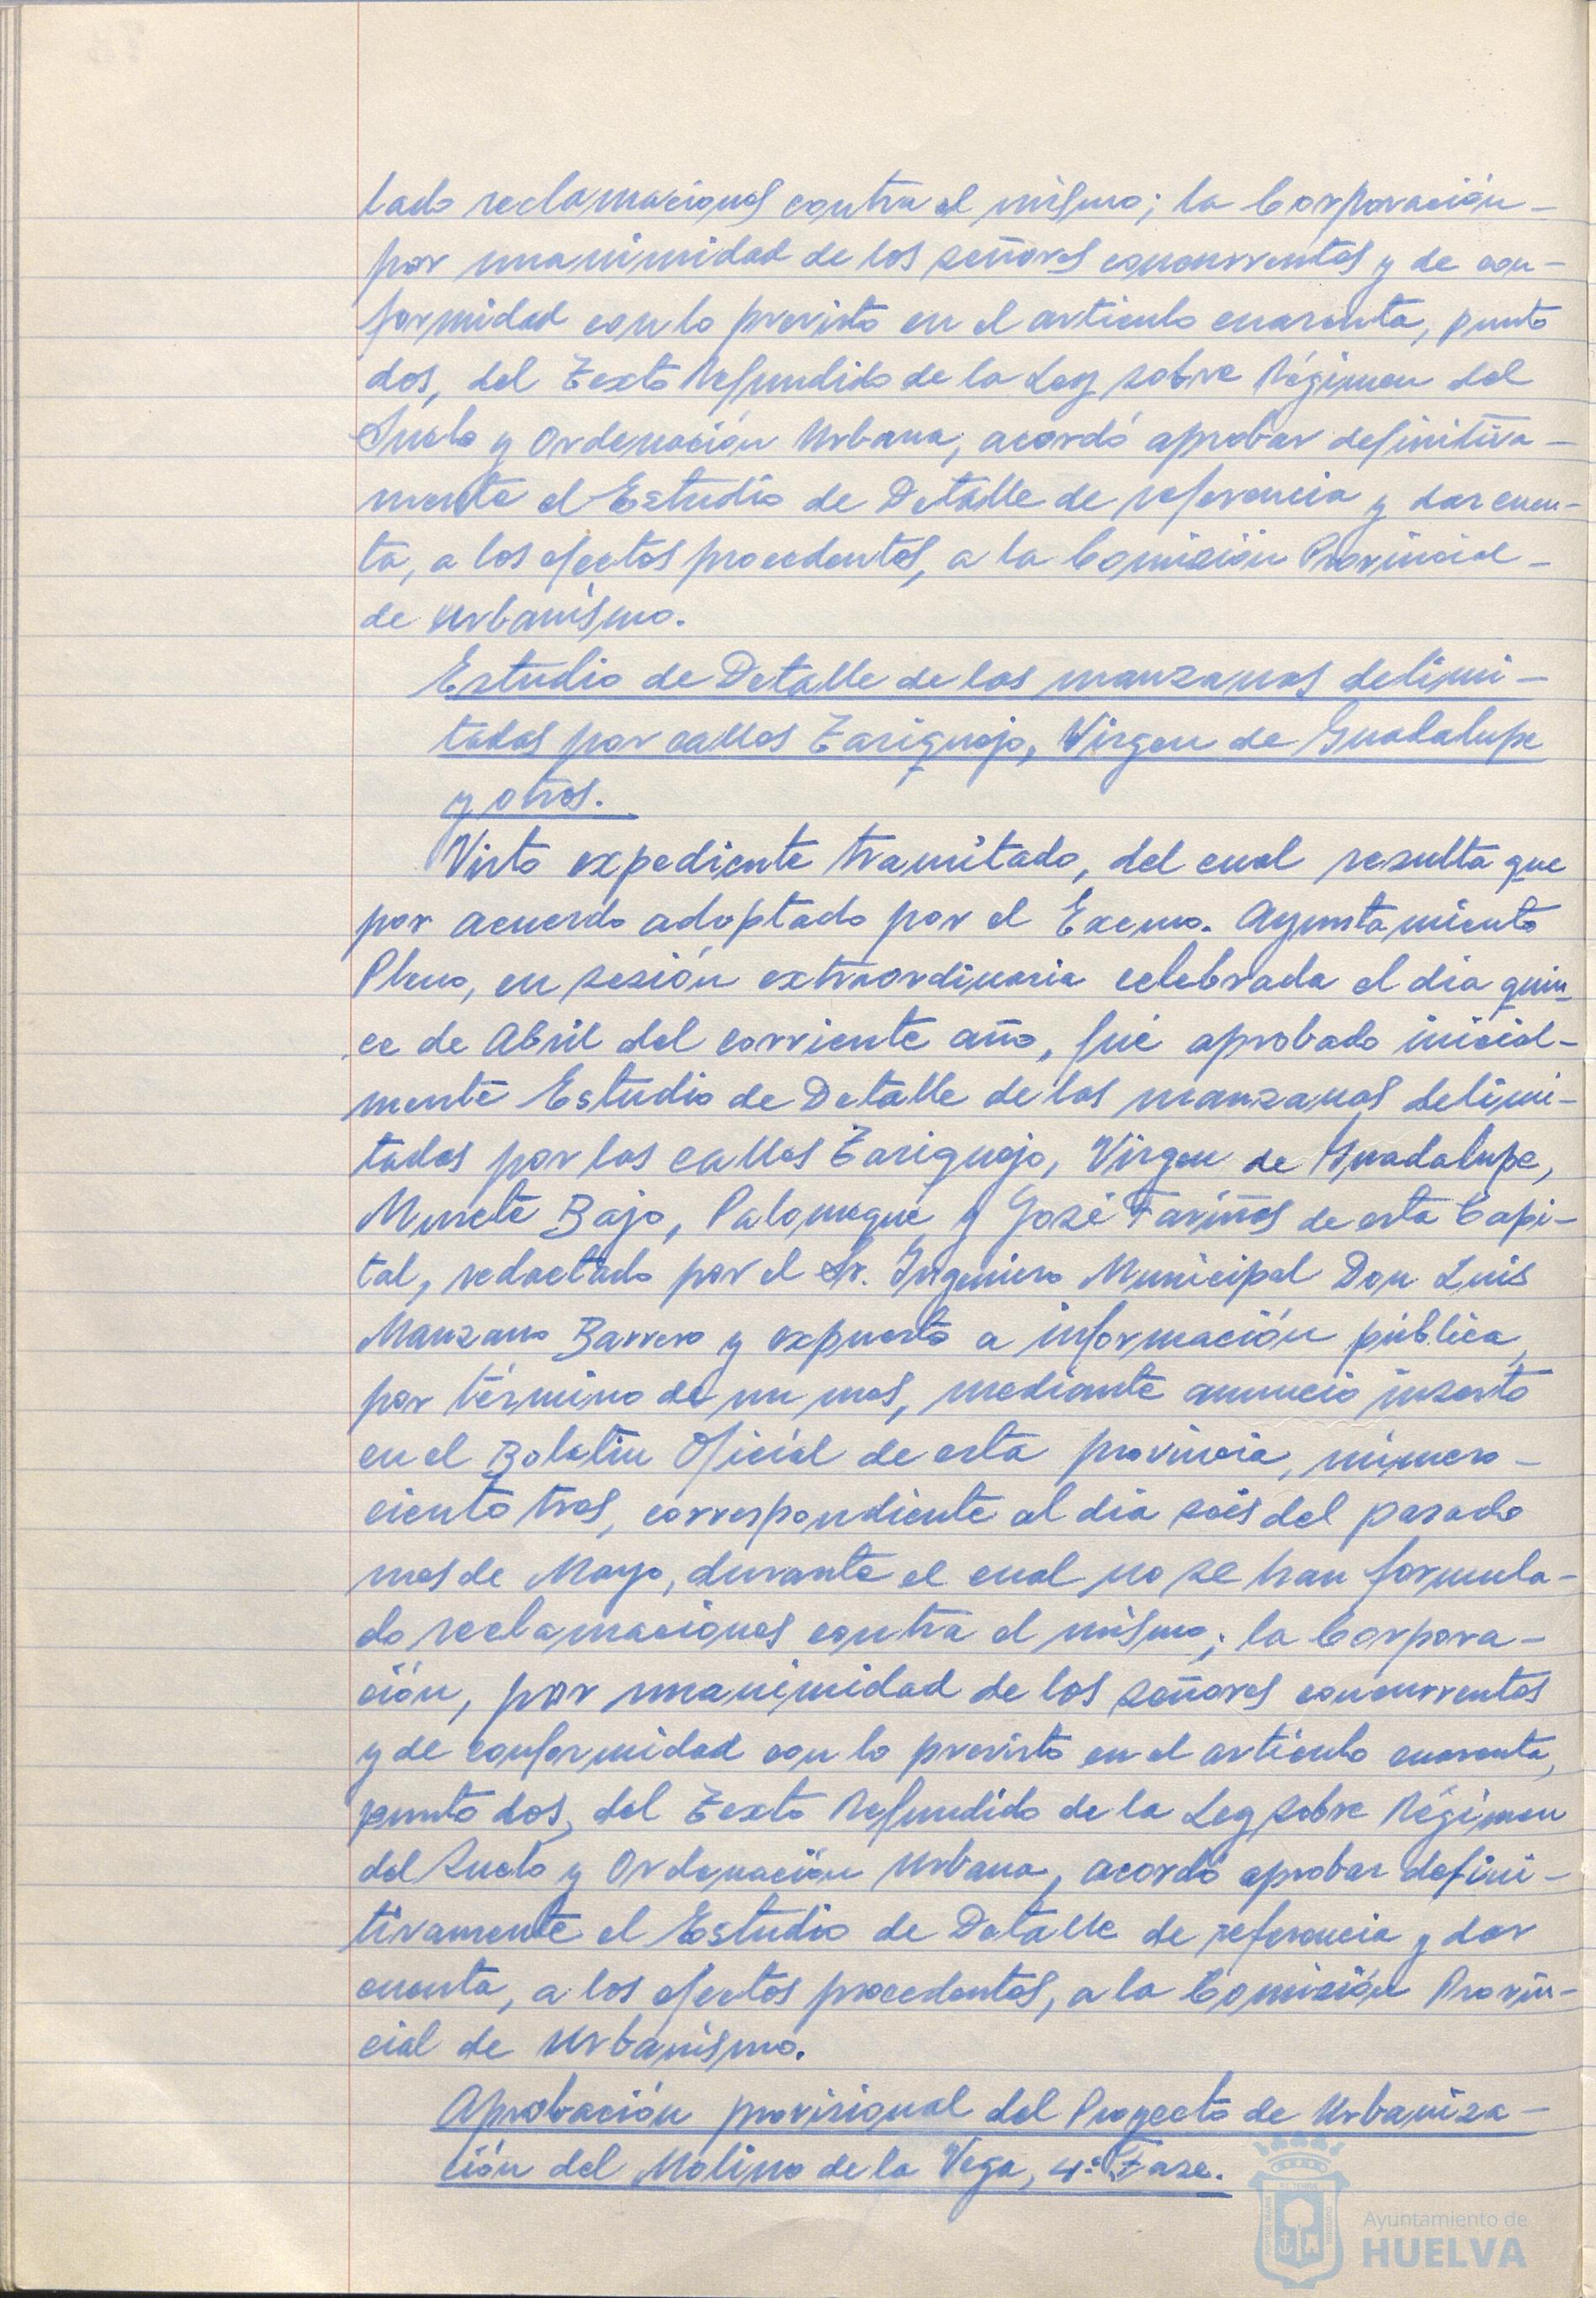 lado reclamaciones contra el mismo; la Corporación-
por unanimidad de los señores concurrentes y de con-
formidad con lo previsto en el artículo cuarenta, punto
dos, del Texto Refundido de la Ley sobre Régimen del
Suelo y Ordenación Urbana, acordó aprobar definitiva-
mente el Estudio de Detalle de referencia y dar cuen-
ta, a los efectos procedentes, a la Comisión Provincial-
de Urbanismo.
Estudio de Detalle de las manzanas delimi-
tadas por calles Tariquejo, Virgen de Guadalupe
y otras.
Visto expediente tramitado, del cual resulta que
por acuerdo adoptado por el Excmo. Ayuntamiento
Pleno, en sesión extraordinaria celebrada el día quin-
ce de Abril del corriente año, fué aprobado inicial-
mente Estudio de Detalle de las manzanas delimi-
tadas por las calles Tariquejo, Virgen de Guadalupe,
Murete Bajo, Palomeque y José Fariñas de esta Capi-
tal, redactado por el Sr. Ingeniero Municipal Don Luis
Manzano Barrero y expuesto a información pública,
por término de un mes, mediante anuncio inserto
en el Boletín Oficial de esta provincia, número-
ciento tres, correspondiente al día seis del pasado
mes de Mayo, durante el cual no se han formula-
do reclamaciones contra el mismo; la Corpora-
ción, por unanimidad de los señores concurrentes
y de conformidad con lo previsto en el artículo cuarenta,
punto dos, del Texto Refundido de la Ley sobre Régimen
del Suelo y Ordenación Urbana, acordó aprobar defini-
tivamente el Estudio de Detalle de referencia y dar
cuenta, a los efectos procedentes, a la Comisión Provin-
cial de Urbanismo.
Aprobación provisional del Proyecto de Urbaniza-
ción del Molino de la Vega, 4ª Fase.
Ayuntamiento de
HUELVA